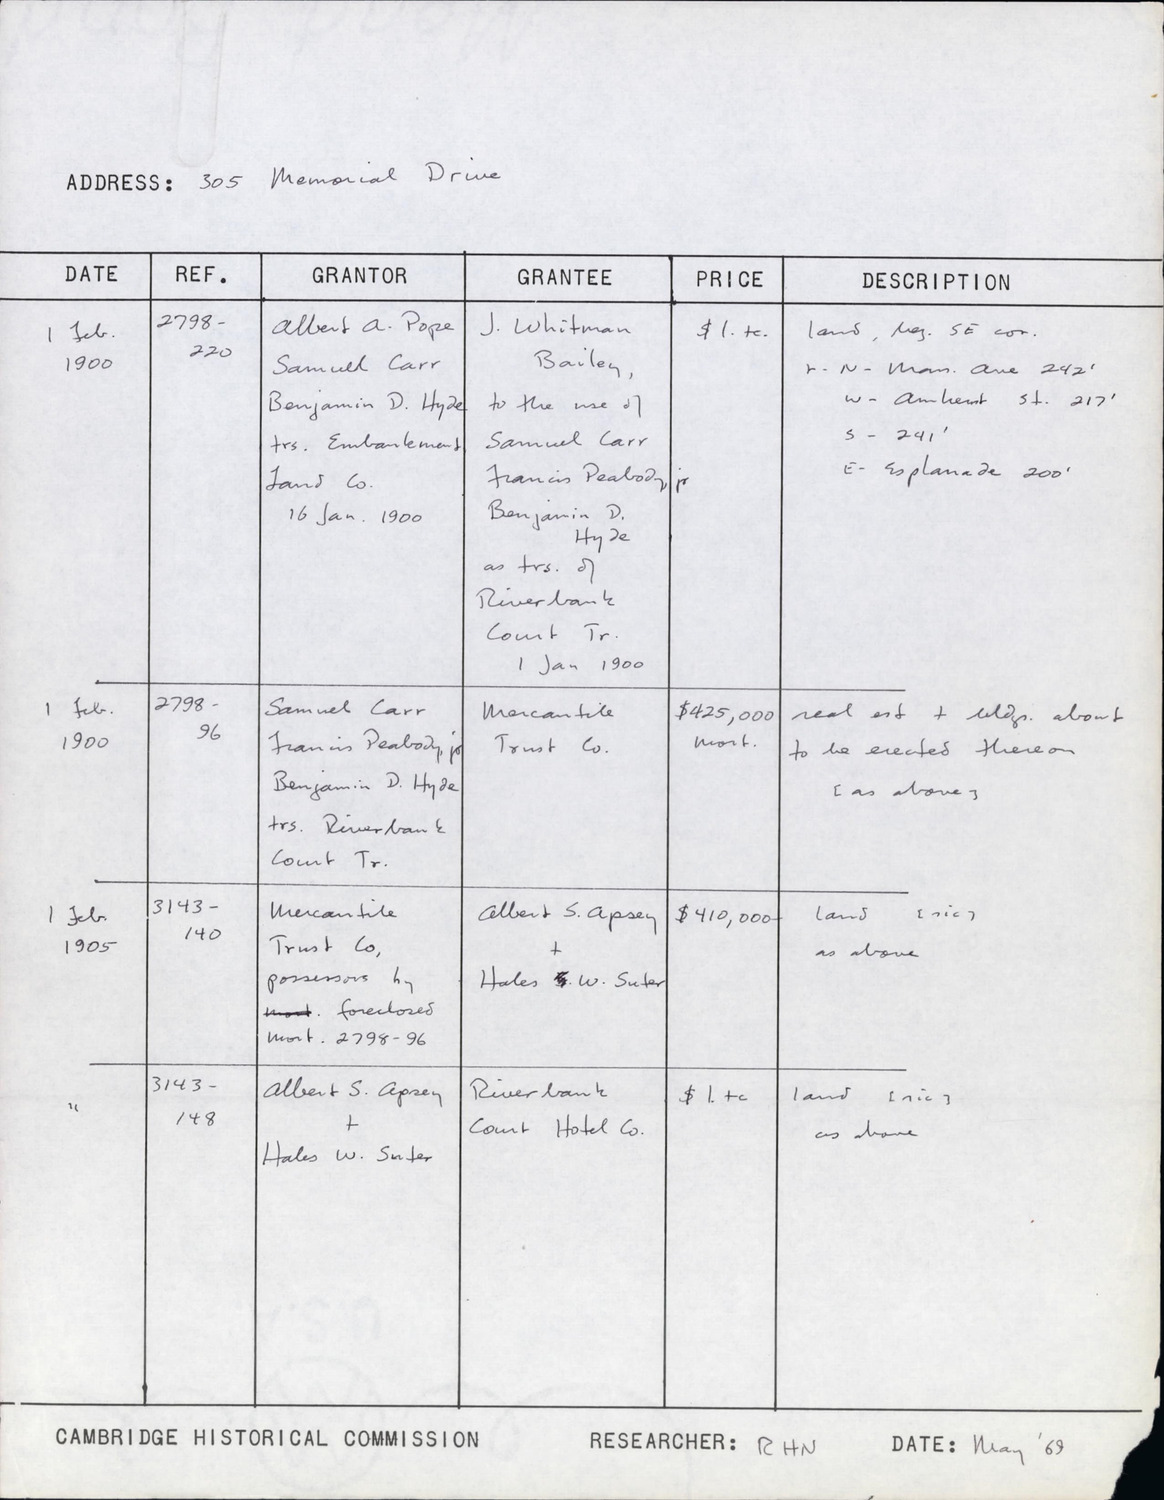 ADDRESS: 305 Memorial Drive
DATE REF. GRANTOR GRANTEE PRICE DESCRIPTION
1 Feb. 1900
2798-220
Albert A. Pope
Samuel Carr
Benjamin D. Hyde
trs. Embankment
Land Co.
16 Jan. 1900
J. Whitman
Bailey,
to the use of
Samuel Carr
Francis Peabody, jr
Benjamin D.
Hyde
as trs. of
Riverbank
Court Tr.
1 Jan 1900
$1. tc.
land, beg. SE cor.
r- N- Mass. Ave 242'
W- Amherst St. 217'
S - 241'
E- Esplanade 200'
1 Feb.
1900
2798-
96
Samuel Carr
Francis Peabody, jr
Benjamin D. Hyde
trs. Riverbank
Court Tr.
Mercantile
Trust Co.
$425,000
mort.
real est + bldgs. about
to be erected thereon
[as above]
1 Feb.
1905
3143-
140
Mercantile
Trust Co,
possessors by
mort. foreclosed
mort. 2798-96
Albert S. Apsey
+
Hales W. Suter
$410,000
land [sic]
as above
"
3143-
148
Albert S. Apsey
+
Hales W. Suter
Riverbank
Court Hotel Co.
$1. tc
land [sic]
as above
CAMBRIDGE HISTORICAL COMMISSION RESEARCHER: RHN DATE: May '69